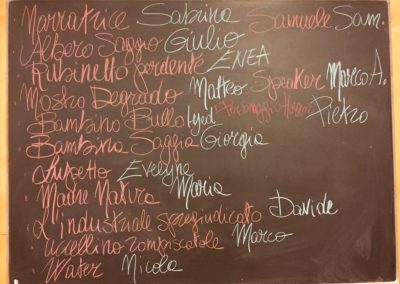 Narratrice Sabrina Samuele Sam.
Albero Saggio Giulio
Rubinetto perdente ENEA
Mostro Degrado Matteo Speaker Marco A.
Bambino Bullo Iyed Personaggio Pietro
Bambina Saggia Giorgia
Evelyne
Madre Natura Maria
L'industriale spregiudicato Davide
uccellino rompiscatole Marco
Water Nicola